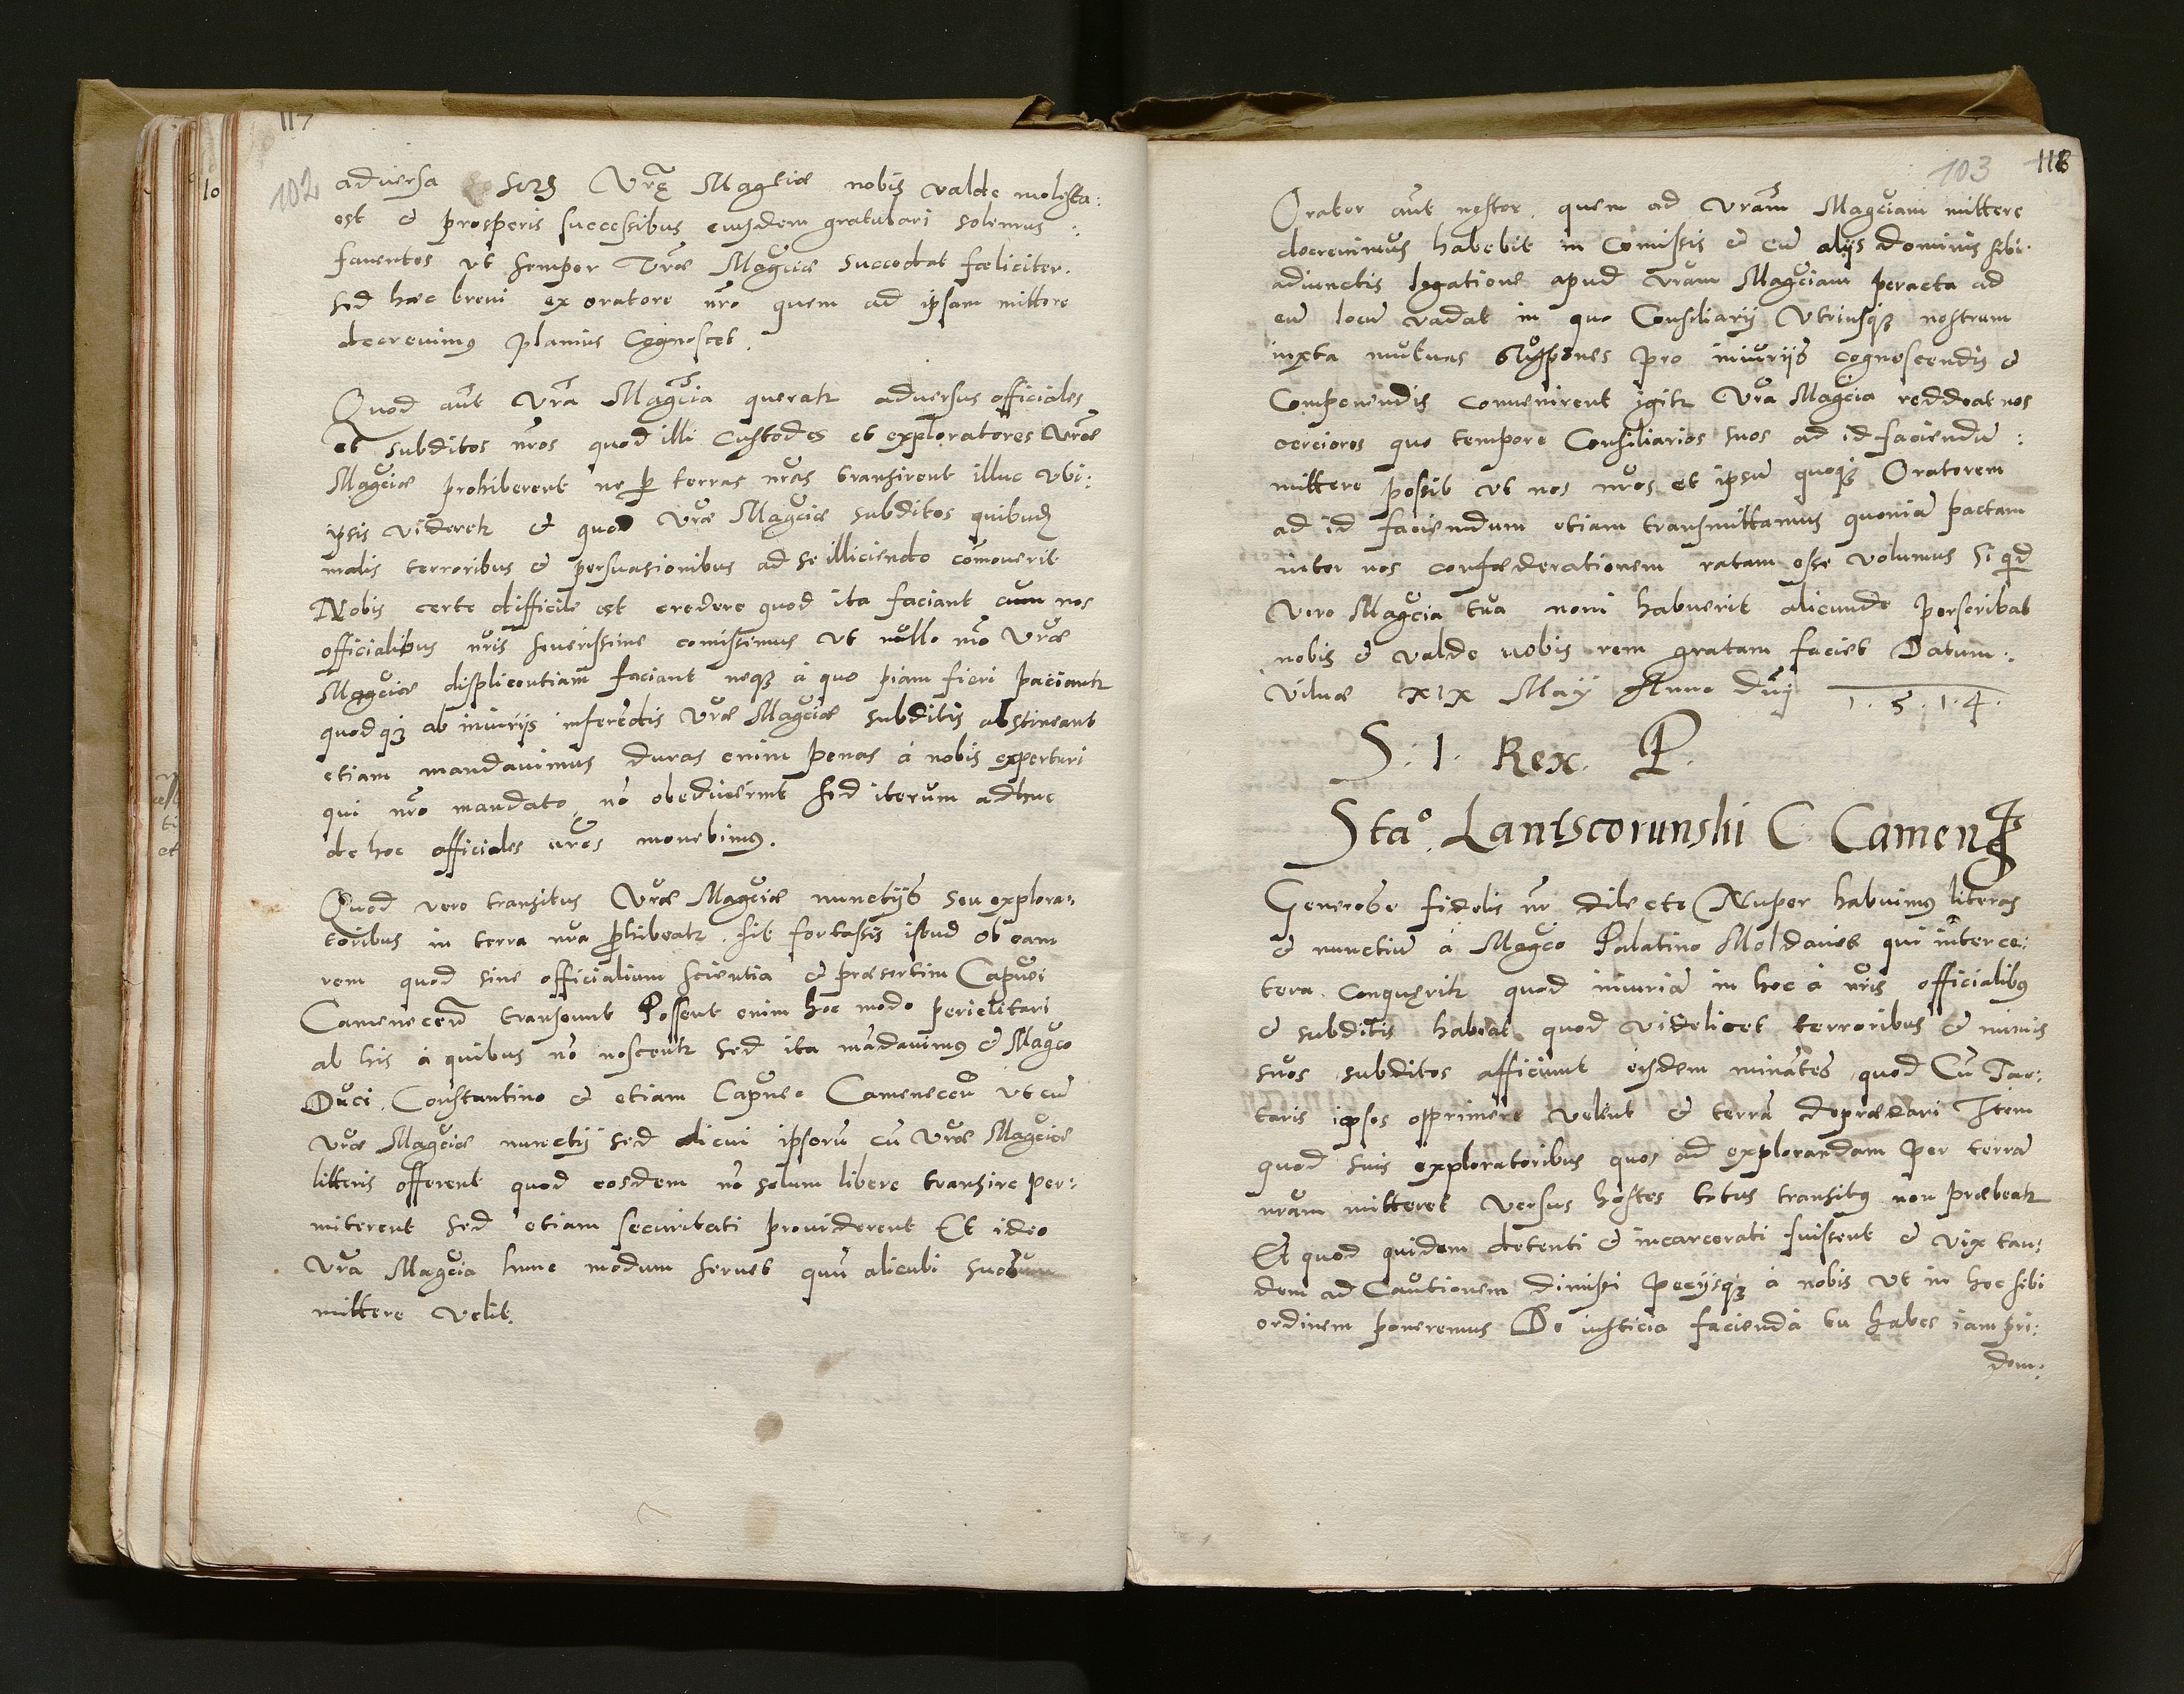 117
102
adversa sors Vrę Magciæ nobis valde molesta:
est & prosperis successibus eiusdem gratulari solemus:
faventes vt semper Vræ Magciæ succedat fæliciter.
sed hæc brevi ex oratore nro quem ad ipsam mittere
decrevimus planius Cognoscet.
Quod aut Vra Magcia querat adversus officiales
et subditos nros quod illi custodes et exploratores Vræ
Magciæ prohiberent ne per terras nras transirent illuc vbi:
ipsis videret & quod Vræ Magciæ subditos quibusd
malis terroribus & persuasionibus ad se illiciendo comoverit
Nobis certe difficile est credere quod ita faciant cum nos
officialibus nris severissime comissemus vt nullo mo Vræ
Magciæ displicentiam faciant neq à quo piam fieri paciant
quodq ab iniurijs inferēdis Vræ Magciæ subditis abstineant
etiam mandavimus duras enim penas à nobis experturi
qui nro mandato no obedierint sed iterum adhuc
de hoc officiales nros monebimus.
Quod vero transitus Vræ Magciæ nunctijs seu explora:
toribus in terra nra phibeat. sit fortassis istud ob eam
rem quod sine officialium scientia & præsertim Capnei
Camenecen transeunt Possent enim hoc modo periclitari
ab his à quibus no noscent sed ita mādavimus & Magco
Duci Constantino & etiam Capneo Camenecen vt cū
Vræ Magciæ nunctij sed alicui ipsorū cū Vræ Magciæ
litteris offerent quod eosdem no solum libere transire per:
miterent sed etiam securitati providerent Et ideo
Vra Magcia hunc modum servet quū alicubi suos
mittere velit.
103 118
Orator aut nester. quem ad vram Magciam mittere
decrevimus habebit in Comissis & cū alijs dominis sibi
adiunctis legatione apud vram Magciam peracta ad
eū locū vadat in quo Consiliarij Vtriusq nostrum
iuxta mutuas pro iniurijs cognoscendis &
Componendis convenirent igit Vra Magcia reddeat nos
cerciores quo tempore Consiliarios suos ad id faciendū:
mittere possit vt nos nros et ipsū quoq Oratorem
ad id faciendum etiam transmittamus quoniā pactam
inter nos confæderationem ratam esse volumus Si qd
vero Magcia tua novi habuerit alicunde perscribat
nobis & valde nobis rem gratam faciet Datum:
Vilnæ XIX May Anno Dnj 1.5.1.4.
S. I. Rex. P.
Stao. Lantscorunski C. Camen
Generose fidelis nr dilecte Nuper habuimus literas
& nunctiū à Magco Palatino Moldaviæ qui inter ce:
tera. conquęrit quod iniuriā in hoc à nris officialibus
& subditis habeat quod videlicet terroribus & minis
suos subditos afficiunt eisdem minātes quod Cū Tar:
taris ipsos opprimere velint & terrā deprædari Item
quod suis exploratoribus quos ad explorandam per terrā
nram mitteret versus hostes totus transitus non præbeat
Et quod quidem detenti & incarcerati fuissent & vix tan:
dem ad Cautionem dimissi pecijsq à nobis vt in hoc sibi
ordinem poneremus De iusticia facienda tu habes iam pri:
dem.